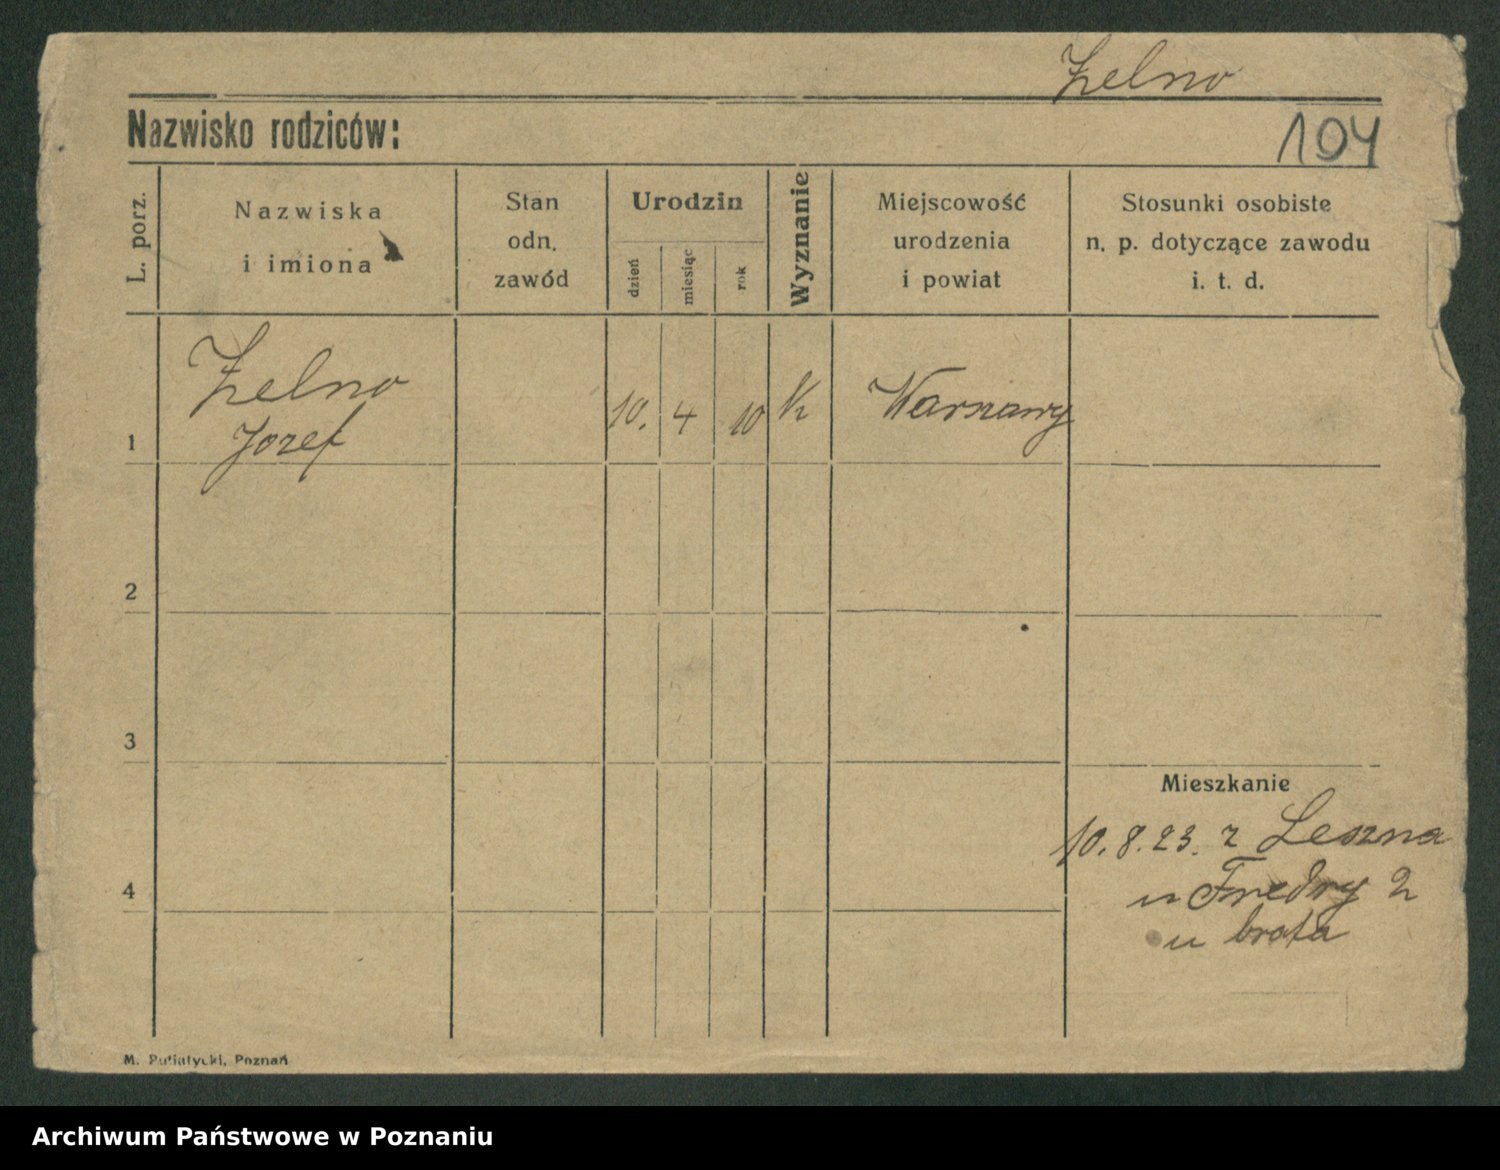 Zelno
Nazwisko rodziców:
104
L. porz.
Nazwiska
i imiona
Stan
odn.
zawód
Urodzin
dzień
miesiąc
rok
Wyznanie
Miejscowość
urodzenia
i powiat
Stosunki osobiste
n. p. dotyczące zawodu
i. t. d.
1
Zelno
Jozef
10. 4 10
K
Warszawy
2
3
4
Mieszkanie
10. 8. 23. z Leszna
u Fredry 2
u brata
M. Putiatycki, Poznań
Archiwum Państwowe w Poznaniu